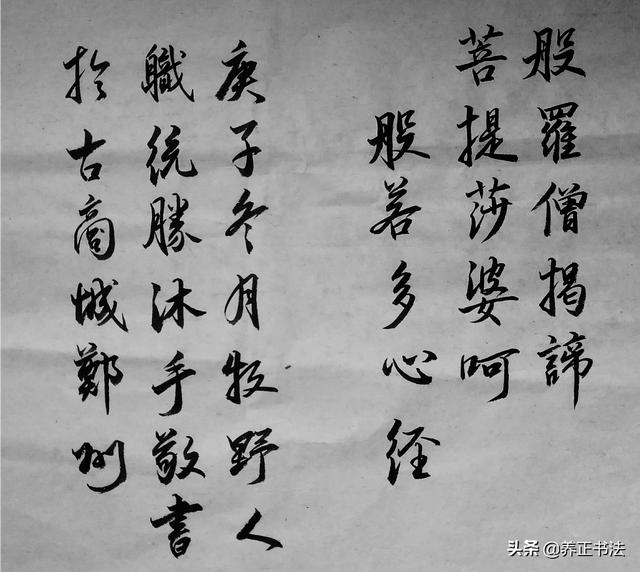 般羅僧揭諦
菩提莎婆呵
般若多心经
庚子冬月牧野人
職統勝沐手敬書
於古商城鄭州
头条 @养正书法